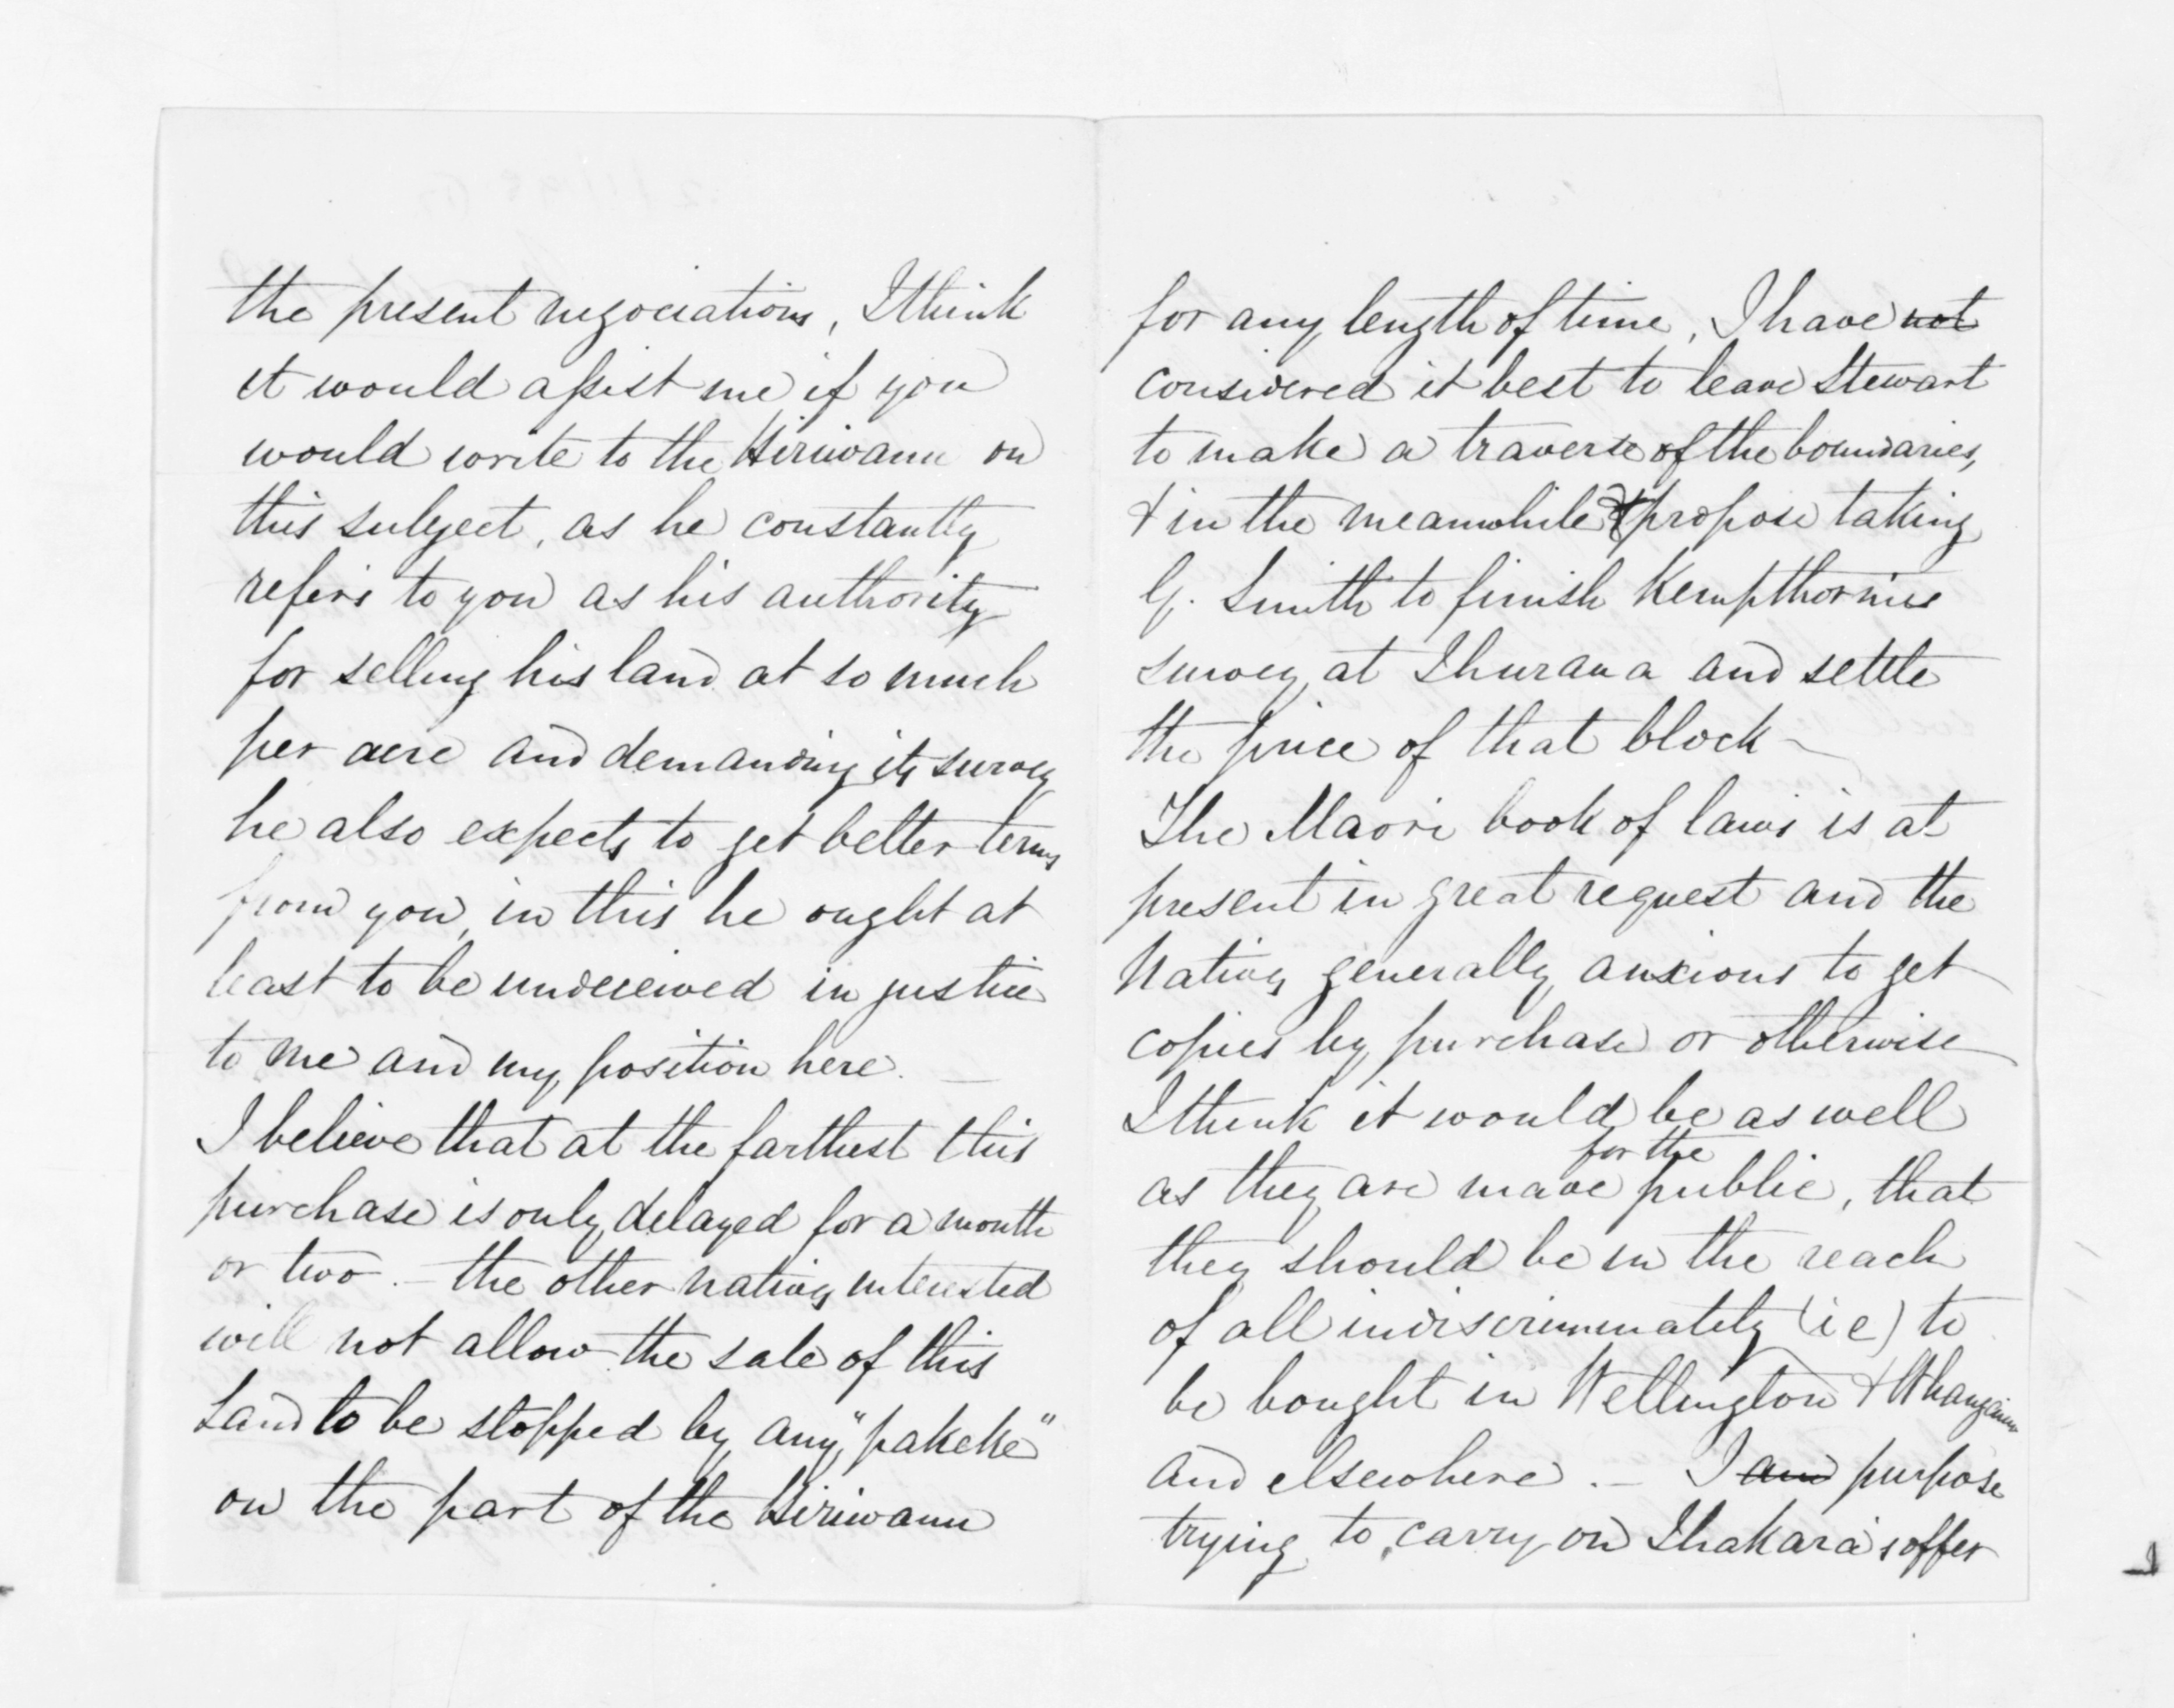 the present negociations, I think
it would assist me if you
would write to the Hiriwanu on
this subject, as he constantly
refers to you as his authority
for selling his land at so much
per acre and demanding its survey
he also expects to get better terms
from you, in this he ought at
least to be undeceived in justice
to me and my position here. —
I believe that at the farthest this
purchase is only delayed for a month
or two. — the other natives interested
will not allow the sale of this
Land to be stopped by any "pakeke"
on the part of the Hiriwanu
for any length of time, I have not
considered it best to leave Stewart
to make a traverse of the boundaries,
& in the meanwhile propose taking
G. Smith to finish Kempthornes
survey at Ihuraua and settle
the price of that block —
The Maori book of laws is at
present in great request and the
Natives generally anxious to get
copies by purchase or otherwise
I think it would be as well
for the
as they are made public, that
they should be in the reach
of all indiscriminately (ie) to
be bought in Wellington & Whanganui
and elsewhere. — I am purpose
trying to carry on Ihakara's offer